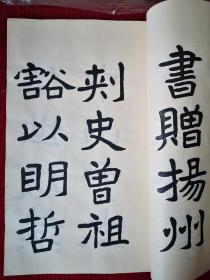 書贈揚州
刺史曽祖
豁以明哲